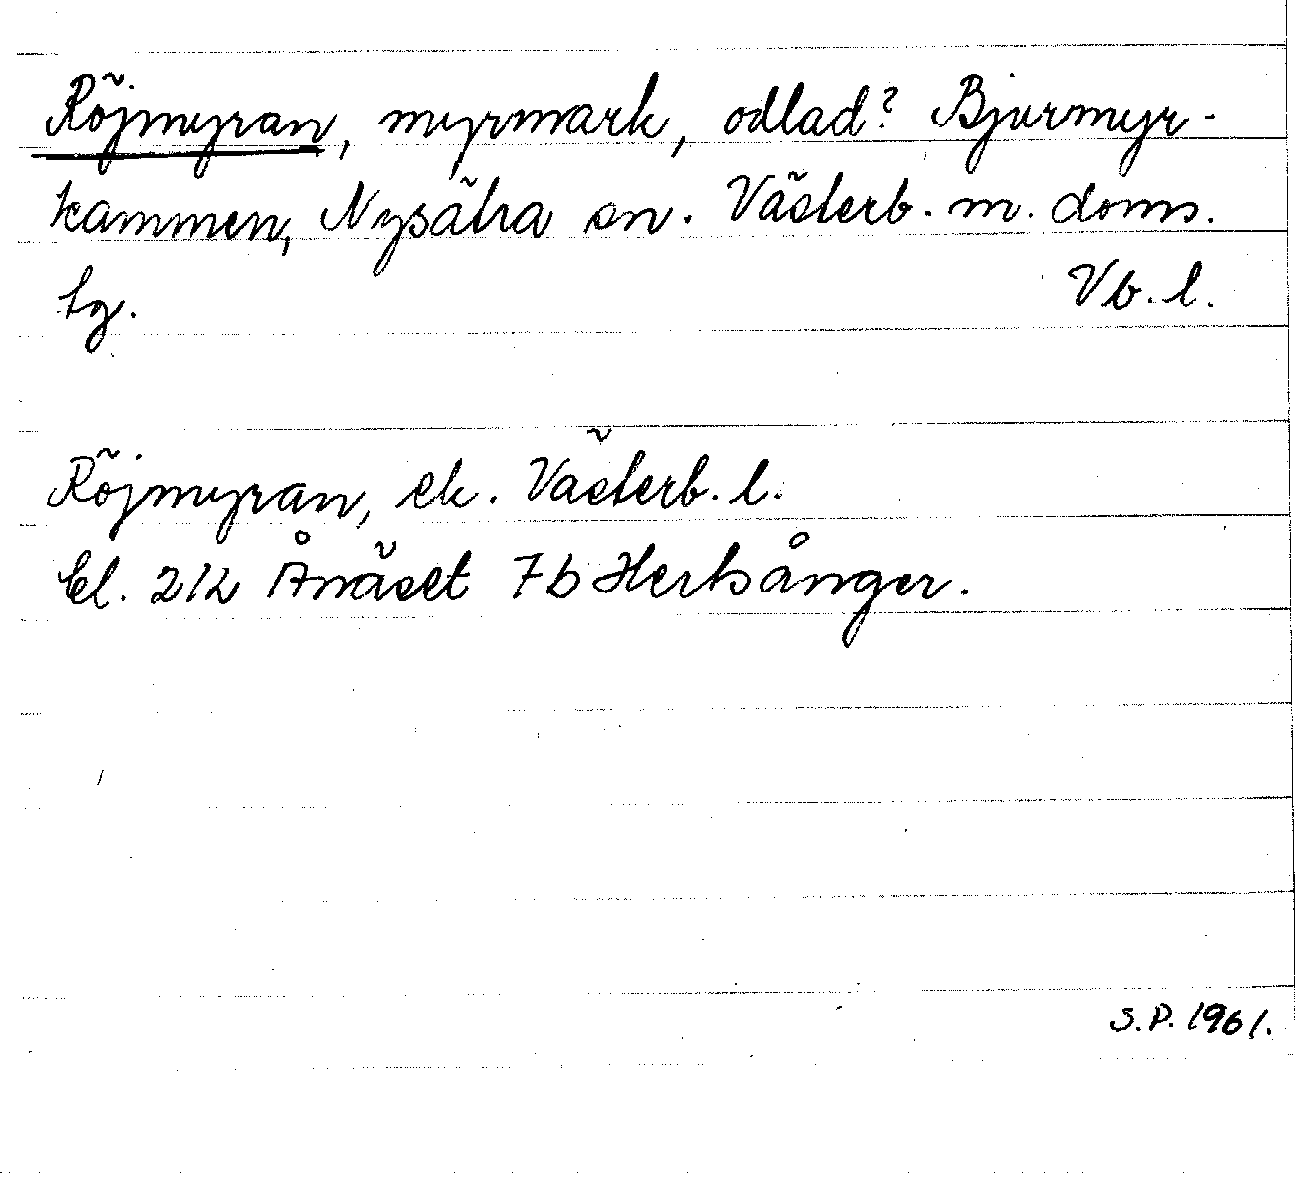 Röjmyran, myrmark, odlad? Bjurmyr-
kammen, Nysätra sn. Västerb. m. doms.
tg. Vb. l.
Röjmyran, ek. Västerb. l.
bl. 21K Ånäset 7b Hertsånger.
S.P. 1961.